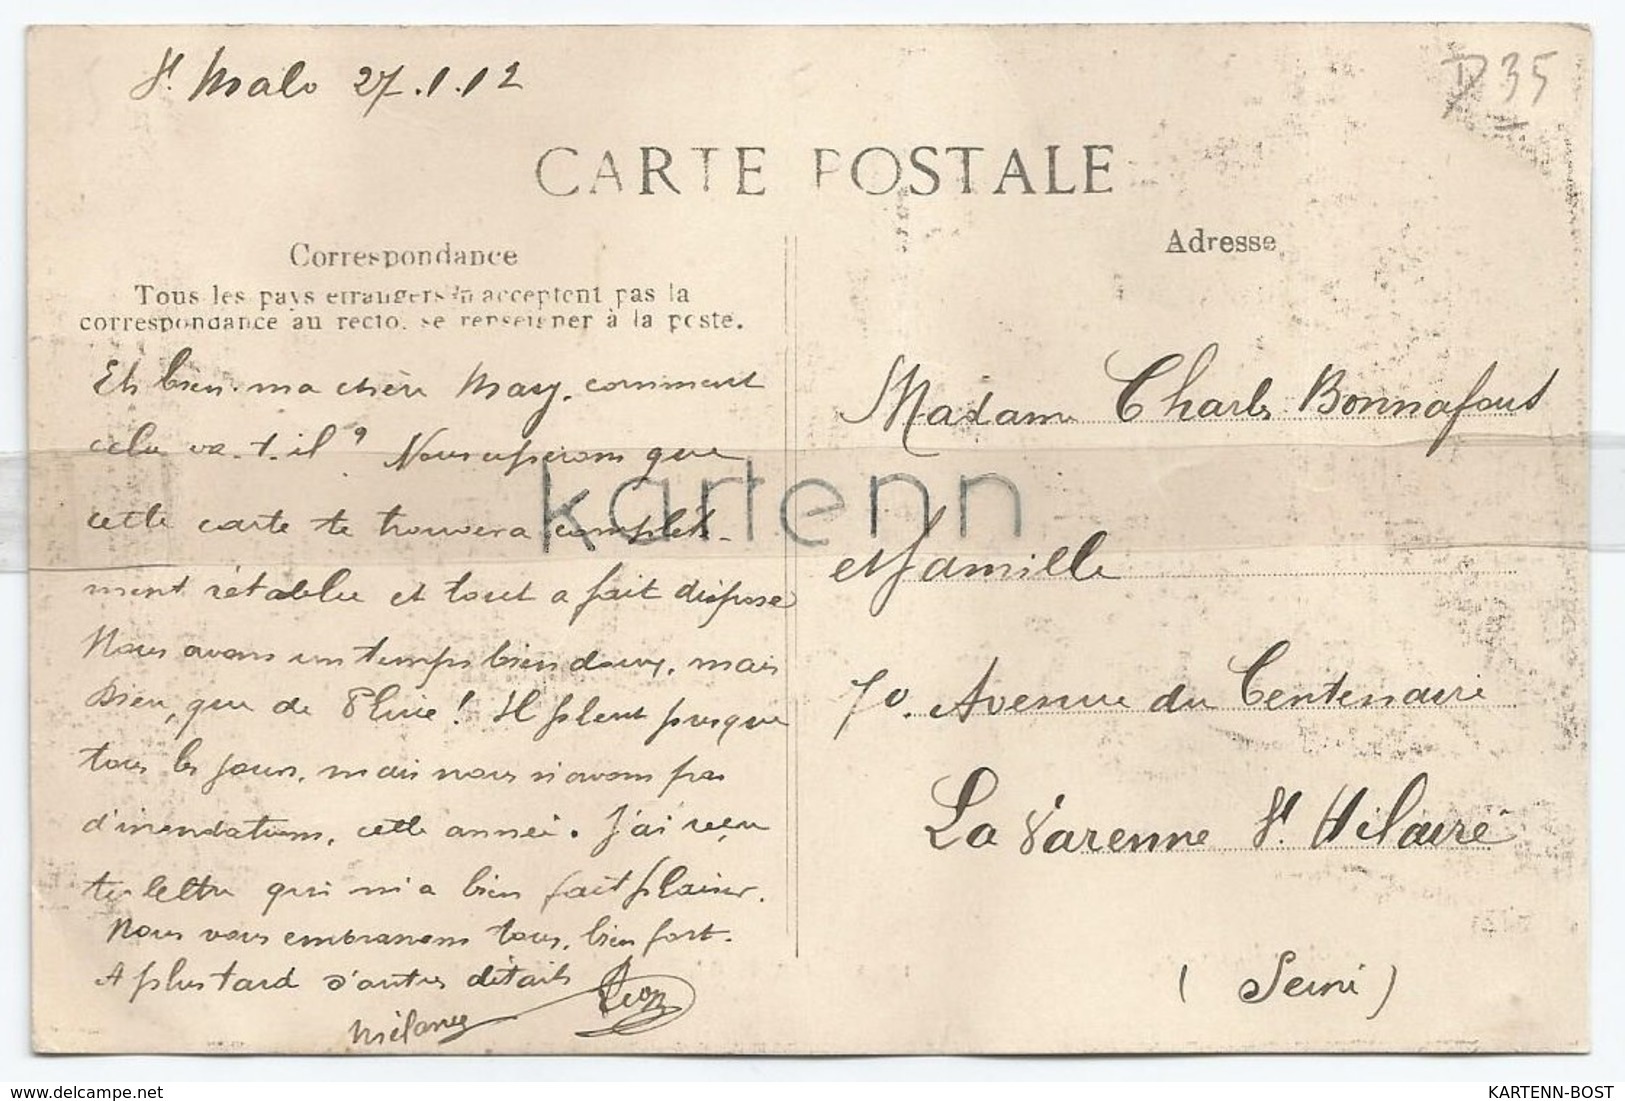 St. Malo 27.1.12
D 35
CARTE POSTALE
Correspondance
Tous les pays étrangers n'acceptent pas la
correspondance au recto. se renseigner à la poste.
Eh bien ma chère May, comment
cela va-t-il ? Nous espérons que
cette carte te trouvera complète-
ment rétablie et tout a fait dispose
Nous avons un temps bien doux, mais
Dieu, que de Pluie ! Il pleut presque
tous les jours, mais nous n'avons pas
d'inondations, cette année. J'ai reçu
ta lettre qui m'a bien fait plaisir.
Nous vous embrassons tous, bien fort.
A plus tard d'autres détails
Mélanie Léon
Adresse
Madame Charles Bonnafous
et famille
70. Avenue du Centenaire
La Varenne St Hilaire
(Seine)
kartenn
delcampe.net
KARTENN-BOST